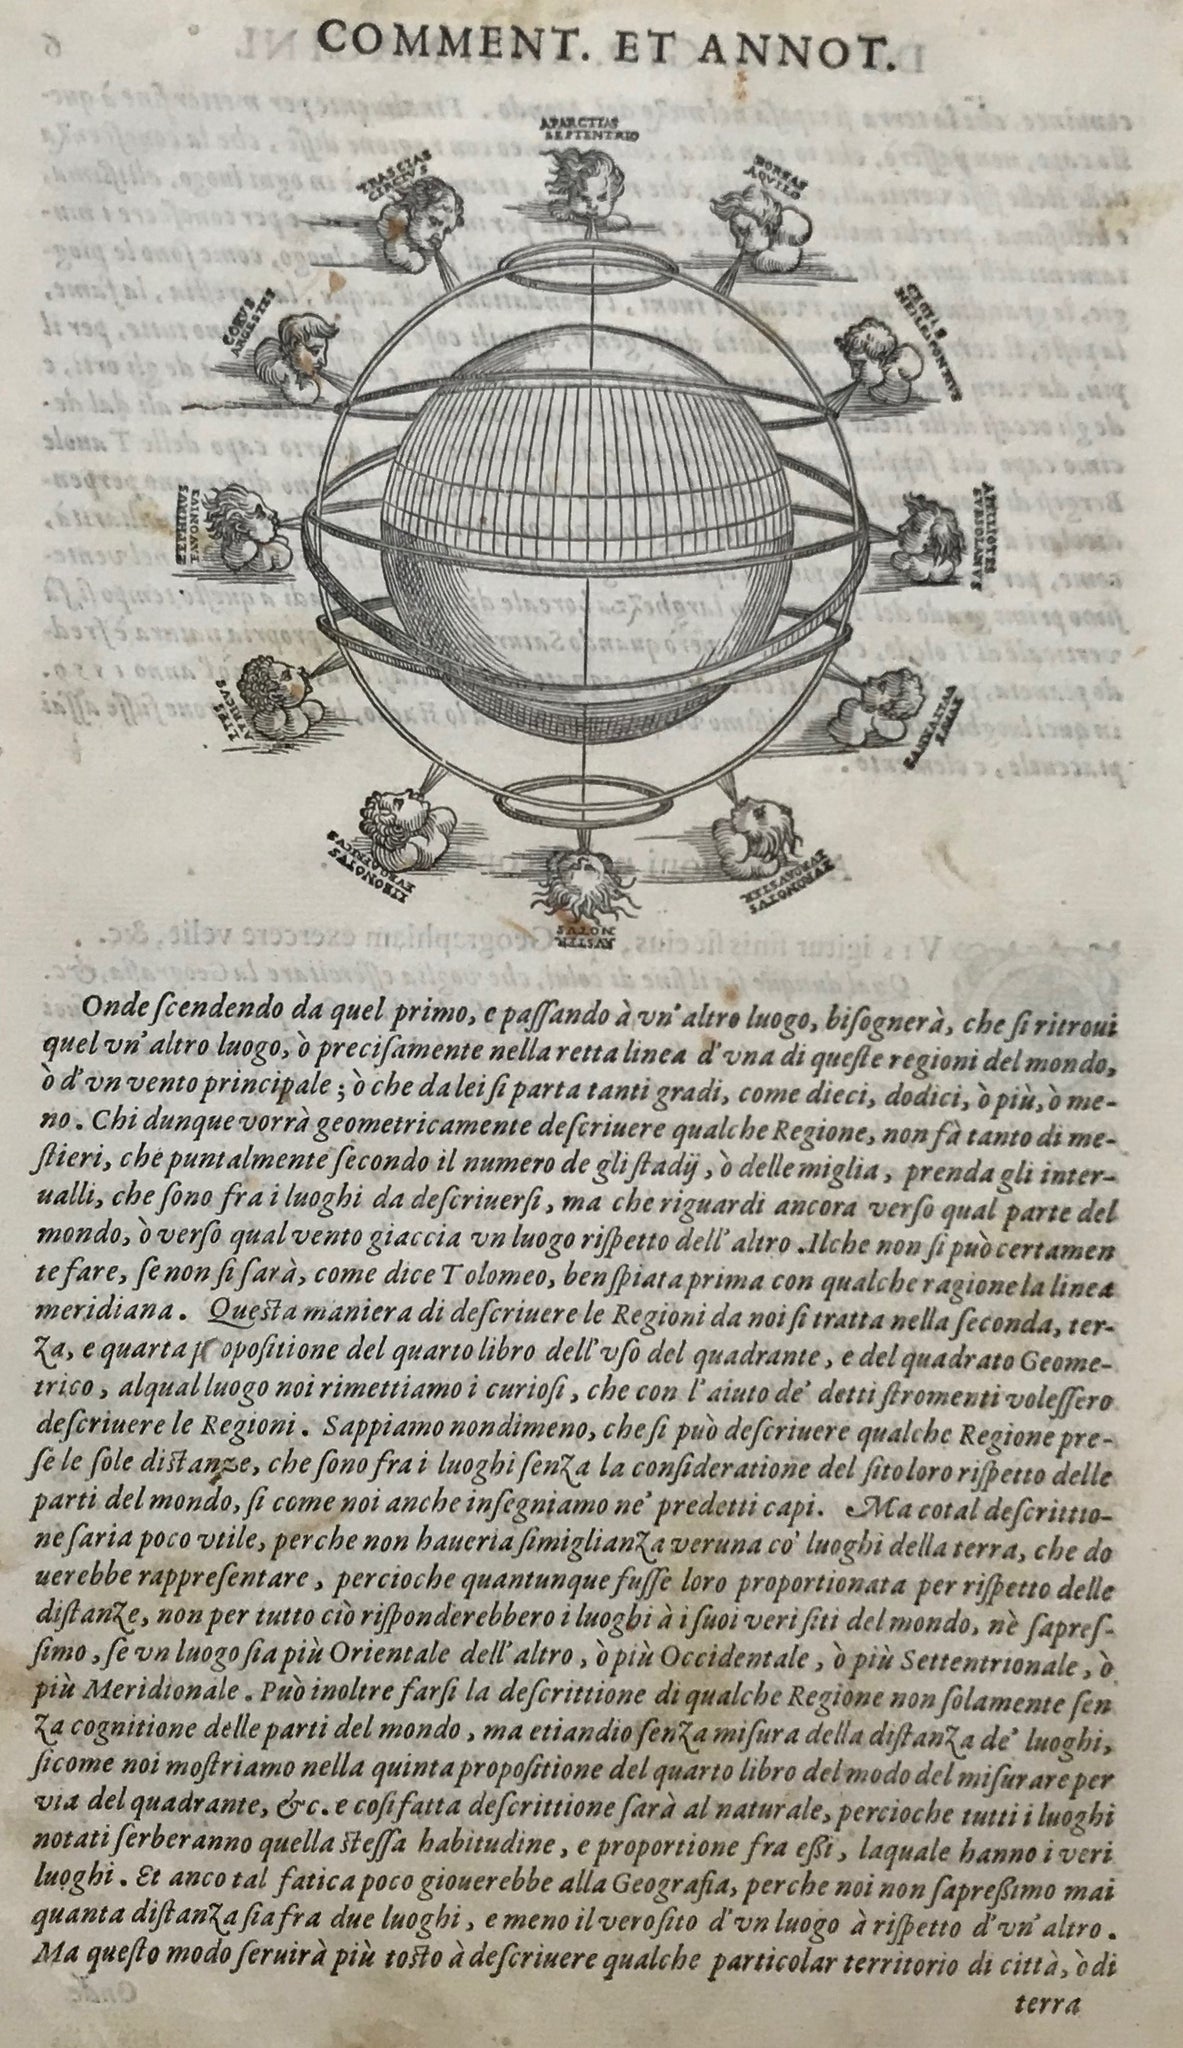 COMMENT. ET ANNOT.
APARCTIAS
SEPTENTRIO
TRASCIAS
CIRCIVS
BOREAS
AQVILO
CORVS
ARGESTES
CECIAS
HELLESPONTIVS
ZEPHIRVS
FAVONIVS
APELIOTES
SVBSOLANVS
AFRICVS
LIBS
VVLTVRNVS
EVRVS
LIBONOTVS
NOTVS
AVSTER
EVRONOTVS
Onde ſcendendo da quel primo, e paſſando à vn' altro luogo, biſognerà, che ſi ritroui
quel vn' altro luogo, ò preciſamente nella retta linea d'vna di queſte regioni del mondo,
ò d'vn vento principale; ò che da lei ſi parta tanti gradi, come dieci, dodici, ò più, ò me-
no. Chi dunque vorrà geometricamente deſcriuere qualche Regione, non fà tanto di me-
ſtieri, che puntalmente ſecondo il numero de gli ſtadij, ò delle miglia, prenda gli inter-
ualli, che ſono fra i luoghi da deſcriuerſi, ma che riguardi ancora verſo qual parte del
mondo, ò verſo qual vento giaccia vn luogo riſpetto dell' altro. Ilche non ſi può certamen
te fare, ſe non ſi ſarà, come dice Tolomeo, ben ſpiata prima con qualche ragione la linea
meridiana. Queſta maniera di deſcriuere le Regioni da noi ſi tratta nella ſeconda, ter-
za, e quarta p opoſitione del quarto libro dell' vſo del quadrante, e del quadrato Geome-
trico, alqual luogo noi rimettiamo i curioſi, che con l'aiuto de' detti ſtromenti voleſſero
deſcriuere le Regioni. Sappiamo nondimeno, che ſi può deſcriuere qualche Regione pre-
ſe le ſole diſtanze, che ſono fra i luoghi ſenza la conſideratione del ſito loro riſpetto delle
parti del mondo, ſi come noi anche inſegniamo ne' predetti capi. Ma cotal deſcrittio-
ne ſaria poco vtile, perche non haueria ſimiglianza veruna co' luoghi della terra, che do
uerebbe rappreſentare, percioche quantunque fuſſe loro proportionata per riſpetto delle
diſtanze, non per tutto ciò riſponderebbero i luoghi à i ſuoi veri ſiti del mondo, nè ſapreſ-
ſimo, ſe vn luogo ſia più Orientale dell' altro, ò più Occidentale, ò più Settentrionale, ò
più Meridionale. Può inoltre farſi la deſcrittione di qualche Regione non ſolamente ſen
za cognitione delle parti del mondo, ma etiandio ſenza miſura della diſtanza de' luoghi,
ſicome noi moſtriamo nella quinta propoſitione del quarto libro del modo del miſurare per
via del quadrante, &c. e coſi fatta deſcrittione ſarà al naturale, percioche tutti i luoghi
notati ſerberanno quella ſteſſa habitudine, e proportione fra eſſi, laquale hanno i veri
luoghi. Et anco tal fatica poco giouerebbe alla Geografia, perche noi non ſapreſſimo mai
quanta diſtanza ſia fra due luoghi, e meno il vero ſito d'vn luogo à riſpetto d'vn' altro.
Ma queſto modo ſeruirà più toſto à deſcriuere qualche particolar territorio di città, ò di
terra